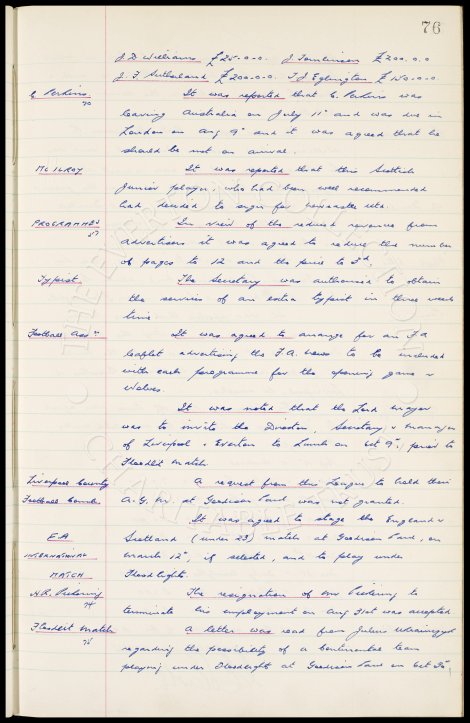 76
J. D. Williams £25.0.0. J. Tomlinson £200.0.0
J. F. Sutherland £200.0.0. T J Eglington £150.0.0.
C. Perkins. It was reported that C. Perkins was
70
leaving Australia on July 11th and was due in
London on Aug 9th and it was agreed that he
should be met on arrival.
McIlroy It was reported that this Scottish
Junior player, who had been well recommended
had decided to sign for Newcastle Utd.
Programmes In view of the reduced revenue from
advertisers it was agreed to reduce the number
of pages to 12 and the price to 3d.
Typist. The Secretary was authorised to obtain
the services of an extra typist in three weeks
time.
Football Assn It was agreed to arrange for an F A
leaflet advertising the F.A. News to be included
with each programme for the opening game v
Wolves.
It was noted that the Lord Mayor
was to invite the Directors, Secretary & Manager
of Liverpool & Everton to Lunch on Oct 9th, prior to
Floodlit match.
Liverpool County A request from this League to hold their
Football Comb. A.G.M. at Goodison Park, was not granted.
It was agreed to stage the England v
F.A Scotland (under 23) match at Goodison Park, on
International March 12th, if selected, and to play under
Match Floodlights.
N.R. Pickering The resignation of Mr Pickering to
74
terminate his employment on Aug 31st was accepted
Floodlit Match A letter was read from Julius
75
regarding the possibility of a Continental team
playing under Floodlights at Goodison Park on Oct
THE EVERTON COLLECTION
CHARITABLE TRUST